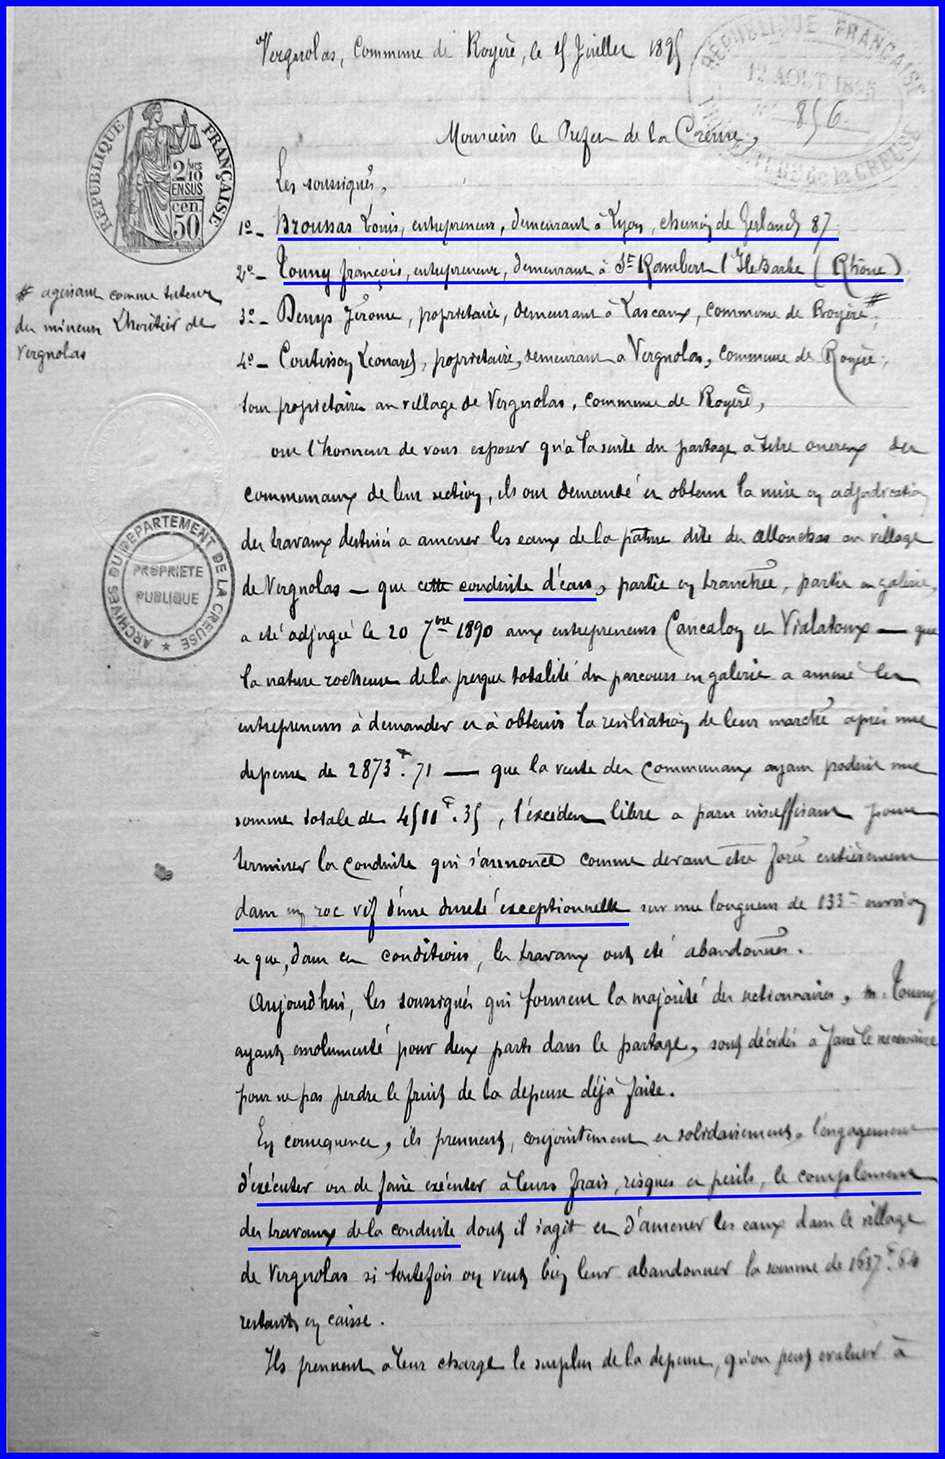 Vergnolas, Commune de Royère, le 15 Juillet 1895
RÉPUBLIQUE FRANÇAISE
12 AOUT 1895
856
PREFECTURE de la CREUSE
Monsieur le Prefet de la Creuse,
RÉPUBLIQUE FRANÇAISE
2/10 EN SUS
50 cen.
Les soussignés,
1º- Broussas Louis, entrepreneur, demeurant à Lyon, chemin de Gerland 87
2º- Tonny françois, entrepreneur, demeurant à St Rambert l'Ile Barbe (Rhône)
# agissant comme tuteur
du mineur Lheritier de
Vergnolas
3º- Denys Jérome, propriétaire, demeurant à Lascaux, commune de Royère #,
4º- Coutisson Léonard, propriétaire, demeurant à Vergnolas, commune de Royère,
tous propriétaires au village de Vergnolas, commune de Royère,
ont l'honneur de vous exposer qu'à la suite du partage à titre onéreux des
communaux de leur section, ils ont demandé et obtenu la mise en adjudication
des travaux destinés à amener les eaux de la pature dite des allonchas au village
de Vergnolas — que cette conduite d'eau, partie en tranchée, partie en galerie,
a été adjugée le 20 7bre 1890 aux entrepreneurs Cancalon et Vialatoux — que
la nature rocheuse de la presque totalité du parcours en galerie a amené les
entrepreneurs à demander et à obtenir la résiliation de leur marché après une
depense de 2873 f. 71 — que la vente des communaux ayant produit une
somme totale de 4511 f. 35, l'excédent libre a paru insuffisant pour
terminer la conduite qui s'annonce comme devant etre forée entièrement
dans un roc vif d'une dureté exceptionnelle sur une longueur de 133 m environ
et que, dans ces conditions, les travaux ont été abandonnés.
Aujourdhui, les soussignés qui forment la majorité des sectionnaires, M. Tonny
ayant emolumenté pour deux parts dans le partage, sont décidés à faire le nécessaire
pour ne pas perdre le fruit de la depense déjà faite.
En consequence, ils prennent, conjointement et solidairement, l'engagement
d'exécuter ou de faire exécuter à leurs frais, risques et périls, le complement
des travaux de la conduite dont il s'agit et d'amener les eaux dans le village
de Vergnolas si toutefois on veut bien leur abandonner la somme de 1637 f. 64
restant en caisse.
Ils prennent à leur charge le surplus de la depense, qu'on peut evaluer à
ARCHIVES DU DÉPARTEMENT DE LA CREUSE
PROPRIÉTÉ
PUBLIQUE